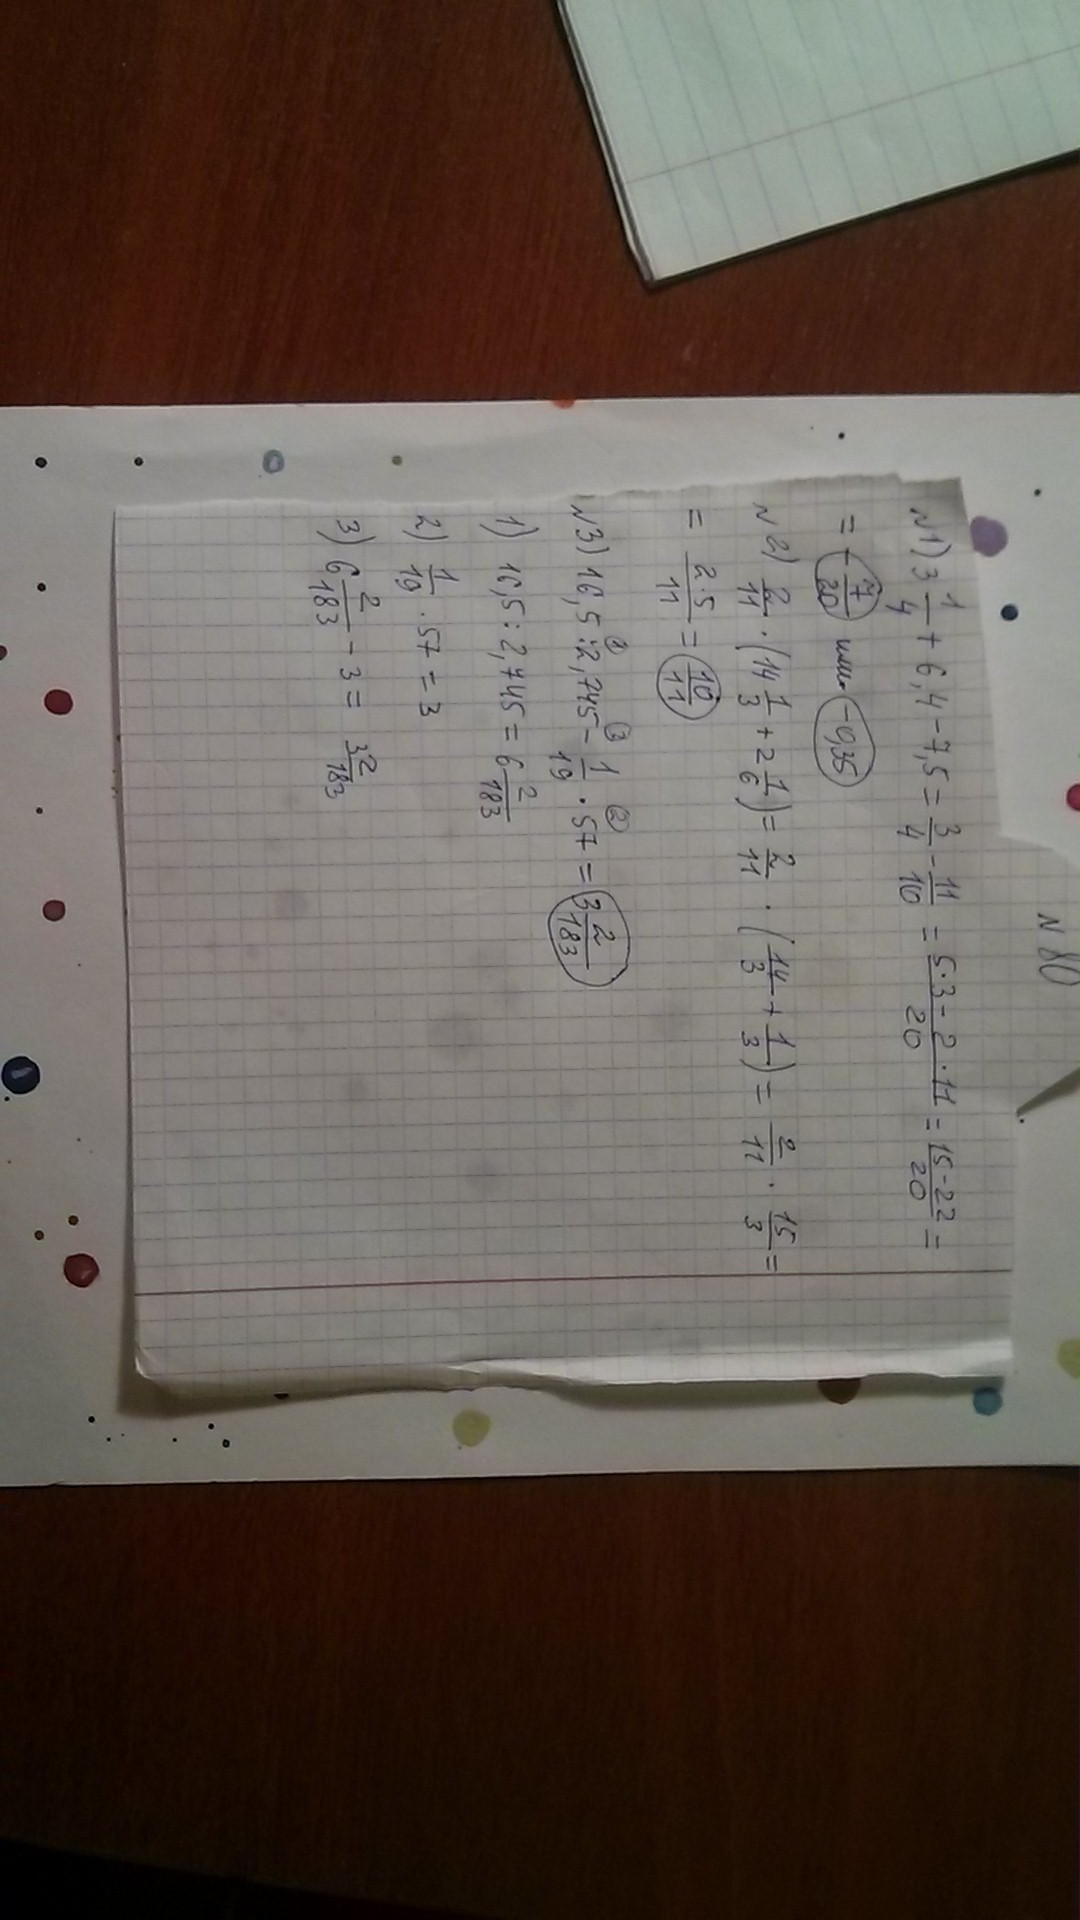 N 80
N1) 3 1/4 + 6,4 - 7,5 = 3/4 - 11/10 = (5·3 - 2·11)/20 = (15-22)/20 =
= -7/20 или -0,35
N2) 2/11 · (14 1/3 + 2 1/6) = 2/11 · (14/3 + 1/3) = 2/11 · 15/3 =
= 2·5/11 = 10/11
N3) 16,5 :① 2,745 -③ 1/19 ·② 57 = 3 2/183
1) 16,5 : 2,745 = 6 2/183
2) 1/19 · 57 = 3
3) 6 2/183 - 3 = 3 2/183